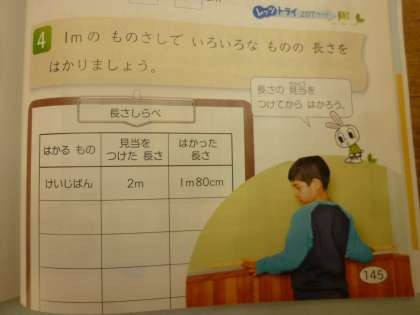 レッツトライ
4
1mの ものさしで いろいろな ものの 長さを
はかりましょう。
長さしらべ
長さの 見当を
つけてから はかろう。
はかる もの
見当を
つけた 長さ
はかった
長さ
けいじばん
2m
1m80cm
145